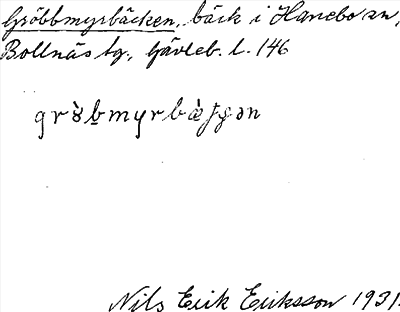 Gröbbmyrbäcken, bäck i Hanebo sn,
Bollnäs tg., Gävleb. l. 146
grö̀bmyrbæ̀
Nils Erik Eriksson 1931.